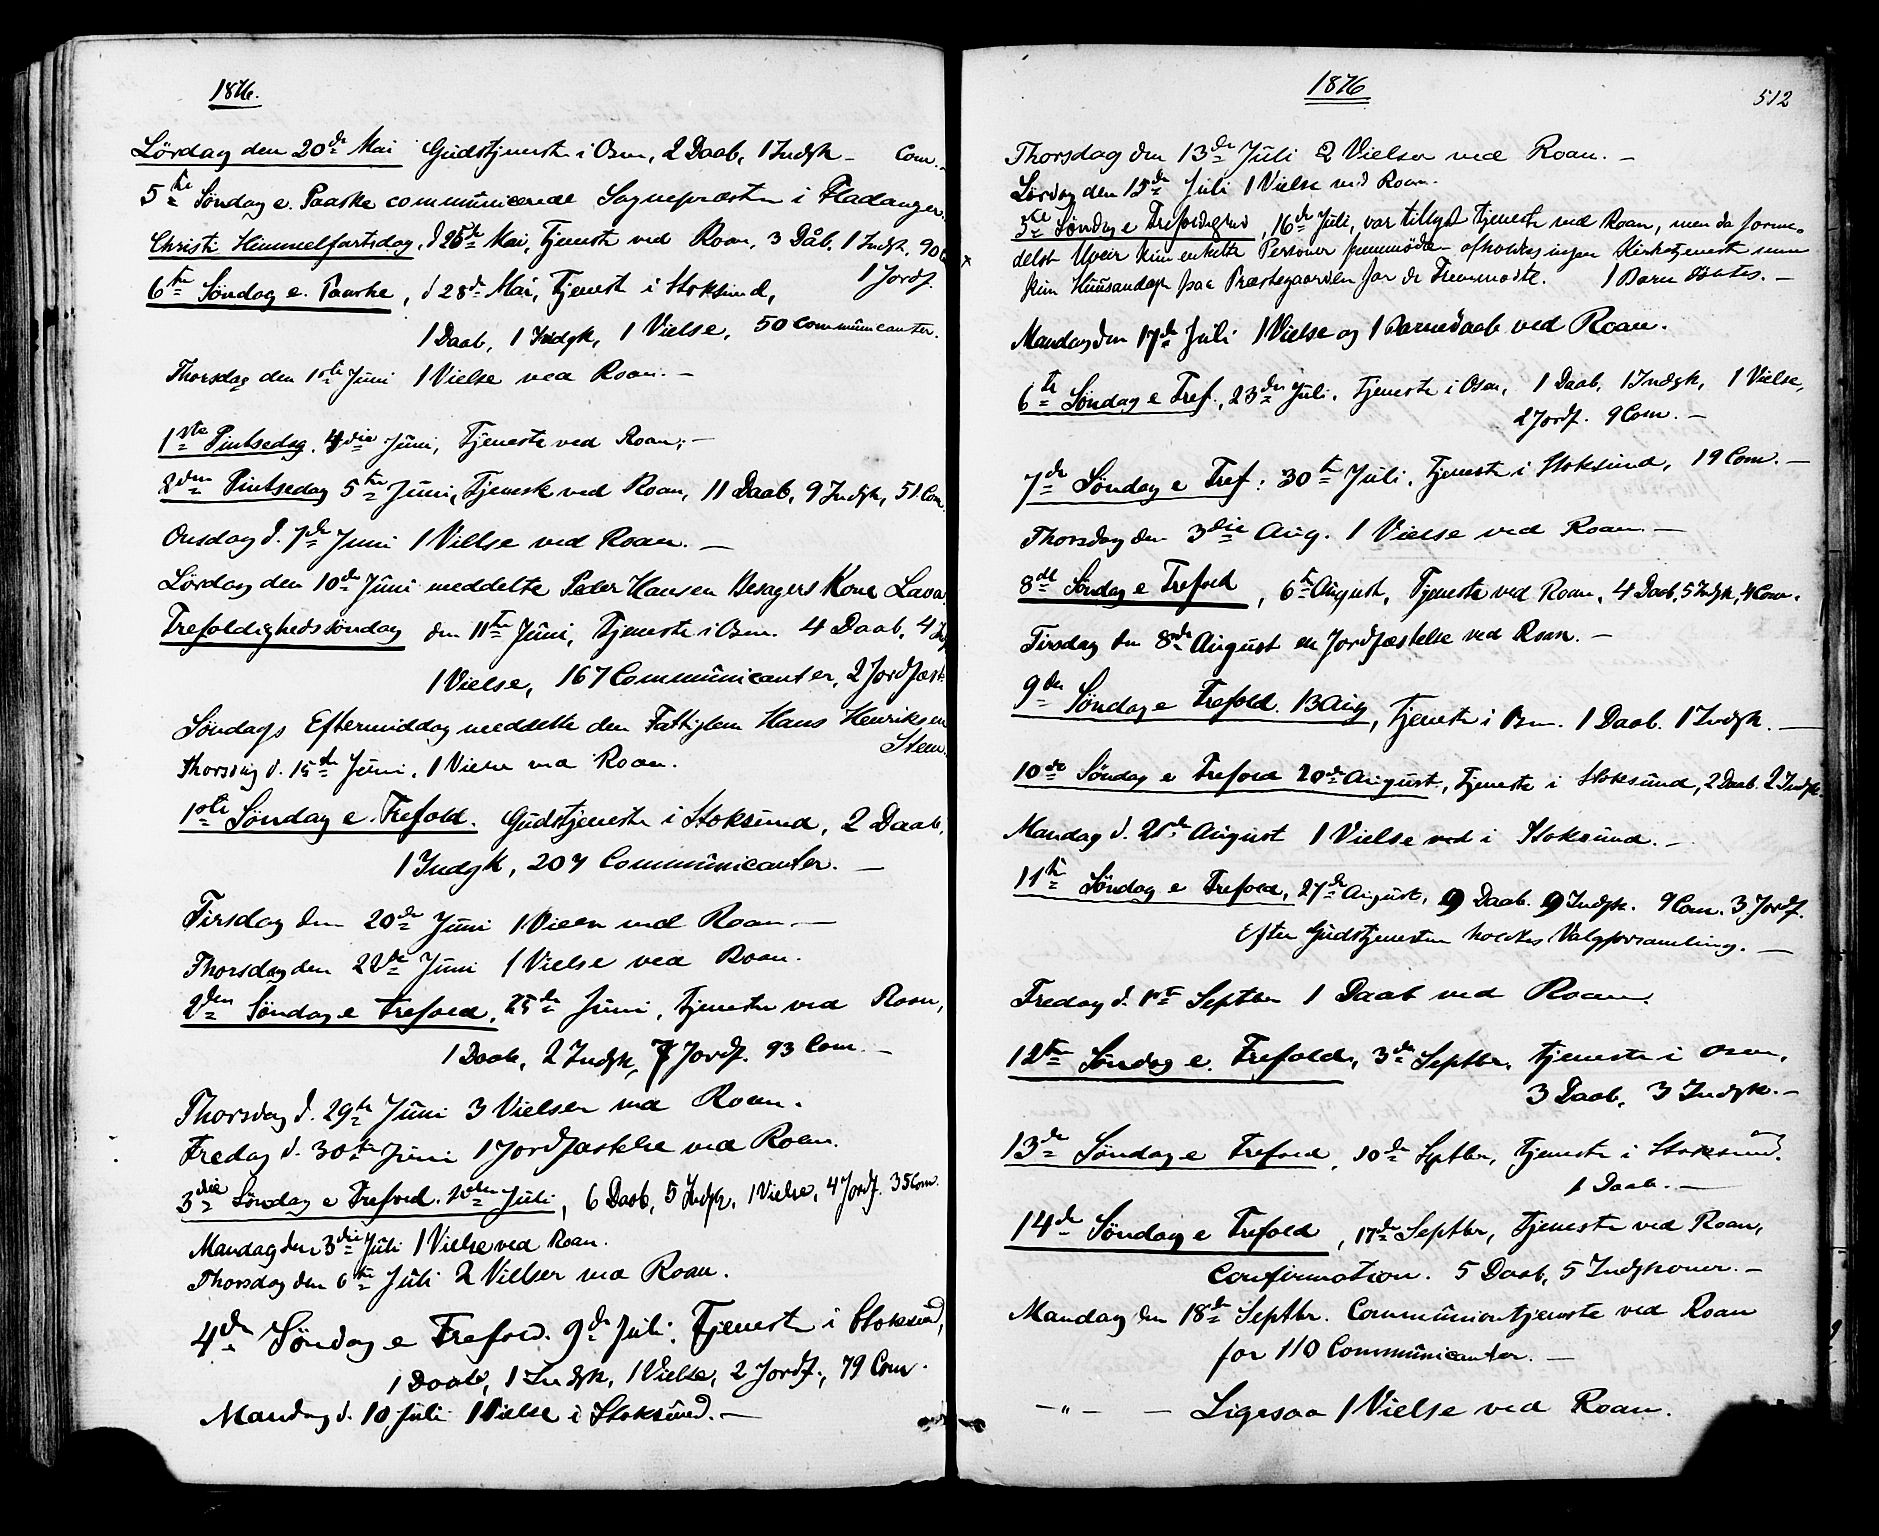 1876.
Lördag den 20de Mai Gudstjeneste i Osen, 2 Daab, 1 Indgk – Com.
5te Søndag e. Paaske communicerede Sognepræsten i Fladanger.
Christi Himmelfartsdag, d 25de Mai, Tjeneste ved Roan, 3 Dåb. 1 Indgk. 90 C
1 Jordf.
6te Søndag e. Paaske, d 28de Mai, Tjeneste i Stoksund,
1 Daab, 1 Indgk, 1 Vielse, 50 Communicanter.
Thorsdag den 1ste Juni 1 Vielse ved Roan. –
1ste Pintsedag, 4die Juni, Tjeneste ved Roan; –
2den Pintsedag 5te Juni, Tjeneste ved Roan, 11 Daab, 9 Indgk, 51 Com.
Onsdag d. 7de Juni 1 Vielse ved Roan. –
Lördag den 10de Juni meddelte Peder Hansen Besagers Kone Lava
Trefoldighedssöndag den 11te Juni, Tjeneste i Osen. 4 Daab, 4 In
1 Vielse, 167 Communicanter, 2 Jordfæst
Søndags Eftermiddag meddelte den Fattiglem Hans Henriksen
Steen.
Thorsdag d. 15de Juni, 1 Vielse ved Roan.
1ste Søndag e. Trefold. Gudstjeneste i Stoksund, 2 Daab,
1 Indgk, 207 Communicanter. –
Tirsdag den 20de Juni 1 Vielse ved Roan –
Thorsdag den 22de Juni 1 Vielse ved Roan.
2den Søndag e Trefold, 25de Juni, Tjeneste ved Roan,
1 Daab, 2 Indgk, 7 Jordf. 93 Com. –
Thorsdag d. 29te Juni 3 Vielser ved Roan.
Fredag d. 30te Juni 1 Jordfæstelse ved Roan.
3die Søndag e Trefold. 2den Juli, 6 Daab, 5 Indgk, 1 Vielse, 4 Jordf. 35 Com.
Mandag den 3die Juli 1 Vielse ved Roan.
Thorsdag den 6te Juli 2 Vielser ved Roan.
4de Søndag e Trefold. 9de Juli. Tjeneste i Stoksund,
1 Daab, 1 Indgk, 1 Vielse, 2 Jordf., 79 Com.
Mandag d. 10 Juli 1 Vielse i Stoksund. –
1876
512
Thorsdag den 13de Juli 2 Vielser ved Roan. –
Lørdag den 15de Juli 1 Vielse ved Roan.
5te Søndag e Trefoldighed, 16de Juli, var tillyst Tjeneste ved Roan, men da forme-
delst Uveir kun enkelte Personer fremmødte afholdtes ingen Kirketjeneste men
kun Huusandagt paa Præstegaarden for de Fremmødte. 1 Barn døbtes. –
Mandag den 17de Juli 1 Vielse og 1 Barnedaab ved Roan.
6te Søndag e Tref., 23de Juli, Tjeneste i Osen, 1 Daab, 1 Indgk, 1 Vielse,
2 Jordf. 9 Com. –
7de Søndag e Tref: 30te Juli, Tjeneste i Stoksund, 19 Com. –
Thorsdag den 3die Aug. 1 Vielse ved Roan –
8de Søndag e Trefold, 6te August, Tjeneste ved Roan, 4 Daab, 5 Indgk, 4 Com.
Tirsdag den 8de August en Jordfæstelse ved Roan. –
9de Søndag e Trefold. 13 Aug, Tjeneste i Osen. 1 Daab. 1 Indgk. –
10de Søndag e Trefold 20de August, Tjeneste i Stoksund, 2 Daab. 2 Indgk.
Mandag d. 21de August 1 Vielse ved i Stoksund. –
11te Søndag e Trefold, 27de August, 9 Daab. 9 Indgk. 9 Com. 3 Jordf.
Efter Gudstjenesten holdtes Valgforsamling. –
Fredag d. 1ste Septbr 1 Daab ved Roan.
12te Søndag e. Trefold, 3de Septbr, Tjeneste i Osen,
3 Daab, 3 Indgk. –
13de Søndag e Trefold, 10de Septbr, Tjeneste i Stoksund.
1 Daab. –
14de Søndag e Trefold, 17de Septbr, Tjeneste ved Roan,
Confirmation. 5 Daab, 5 Indgkoner. –
Mandag den 18de Septbr. Communiontjeneste ved Roan
for 110 Communicanter. –
– " – – Ligesaa 1 Vielse ved Roan.